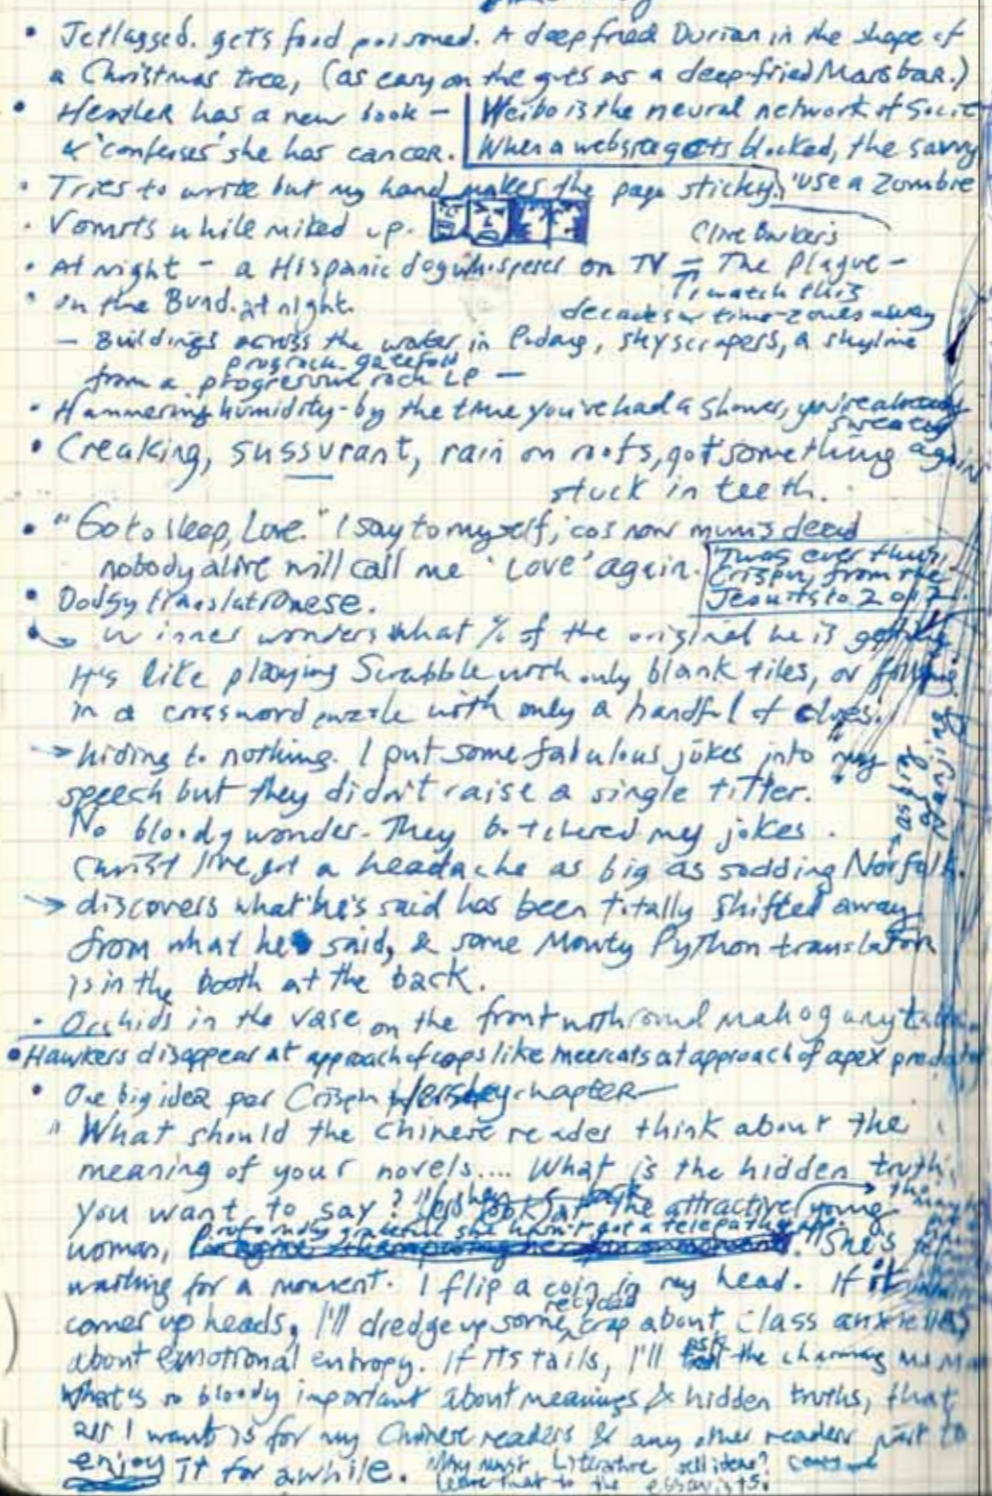 • Jetlagged. gets food poisoned. A deep fried Durian in the shape of
a Christmas tree, (as easy on the guts as a deep-fried Mars bar.)
• Heather has a new book –
& 'confesses' she has cancer.
Weibo is the neural network of
When a website gets blocked, the savvy
use a Zombie
• Tries to write but my hand makes the page sticky.
• Vomits while miked up.
Clive Barker's
• At night – a Hispanic dog whisperer on TV = The Plague –
I watch this
decades or time-zones away
• On the Bund. at night.
– Buildings across the water in Pudong, skyscrapers, a skyline
prog rock gatefold
from a progressive rock LP –
• Hammering humidity – by the time you've had a shower, you're already
sweaty
again
• Creaking, sussurant, rain on roofs, got something
stuck in teeth.
• "Go to sleep, Love." I say to myself, 'cos now mum's dead
nobody alive will call me 'Love' again.
'Twas ever thus,
Crispin, from the
Jesuits to 2012
• Dodgy translationese.
inner wonders what % of the original he is getting.
It's like playing Scrabble with only blank tiles, or filling
in a crossword puzzle with only a handful of clues.
→ hiding to nothing. I put some fabulous jokes into my
speech but they didn't raise a single titter.
No bloody wonder – They butchered my jokes.
Christ I've got a headache as big as sodding Norfolk.
→ as big as Nanjing
→ discovers what he's said has been totally shifted away
from what he said, & some Monty Python translator
is in the booth at the back.
• Orchids in the vase on the front mahogany
• Hawkers disappear at approach of cops like meercats at approach of apex
• One big idea per Crispin Hershey chapter –
"What should the Chinese reader think about the
meaning of your novels.... What is the hidden truth
you want to say?" look at the attractive young
profoundly grateful she hasn't got a telepathy app.
woman, "She's
waiting for a moment. I flip a coin in my head. If it
recycled
comes up heads, I'll dredge up some crap about class anxieties
about emotional entropy. If its tails, I'll ask the charming
what's so bloody important about meanings & hidden truths, that
all I want is for my Chinese readers & any other readers just to
enjoy it for awhile.
Why must Literature sell ideas?
Leave that to the essayists.